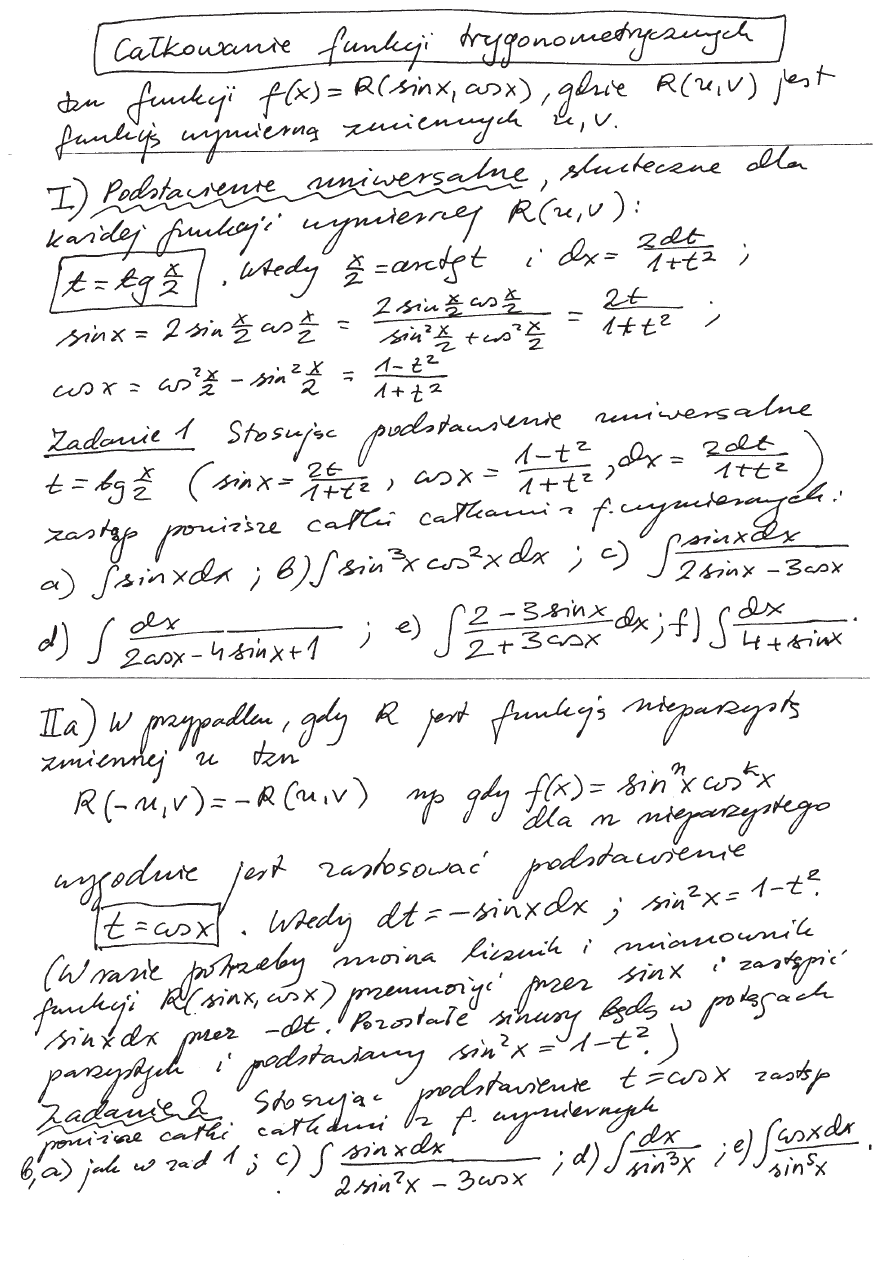 Całkowanie funkcji trygonometrycznych
tzn funkcji f(x) = R(sinx, cosx), gdzie R(u,v) jest
funkcją wymierną zmiennych u, v.
I) Podstawienie uniwersalne, skuteczne dla
każdej funkcji wymiernej R(u,v):
t = tg x/2 . Wtedy x/2 = arctgt i dx = 2dt/(1+t²) ;
sinx = 2 sin x/2 cos x/2 = (2 sin x/2 cos x/2)/(sin² x/2 + cos² x/2) = 2t/(1+t²) ;
cosx = cos² x/2 - sin² x/2 = (1-t²)/(1+t²)
Zadanie 1 Stosując podstawienie uniwersalne
t = tg x/2 (sinx = 2t/(1+t²), cosx = (1-t²)/(1+t²), dx = 2dt/(1+t²))
zastąp poniższe całki całkami z f. wymiernych:
a) ∫sinxdx ; b) ∫sin³x cos²x dx ; c) ∫ sinxdx/(2sinx - 3cosx)
d) ∫ dx/(2cosx - 4sinx + 1) ; e) ∫ (2 - 3sinx)/(2 + 3cosx) dx ; f) ∫ dx/(4 + sinx) .
IIa) W przypadku, gdy R jest funkcją nieparzystą
zmiennej u tzn
R(-u,v) = -R(u,v) np gdy f(x) = sinⁿx cosᵏx
dla n nieparzystego
wygodnie jest zastosować podstawienie
t = cosx . Wtedy dt = -sinxdx ; sin²x = 1-t².
(W razie potrzeby można licznik i mianownik
funkcji R(sinx, cosx) przemnożyć przez sinx i zastąpić
sinxdx przez -dt. Pozostałe sinusy będą w potęgach
parzystych i podstawiamy sin²x = 1-t².)
Zadanie 2 Stosując podstawienie t = cosx zastąp
poniższe całki całkami z f. wymiernych
b,a) jak w zad 1 ; c) ∫ sinxdx/(2sin²x - 3cosx) ; d) ∫ dx/sin³x ; e) ∫ cosxdx/sin⁵x .